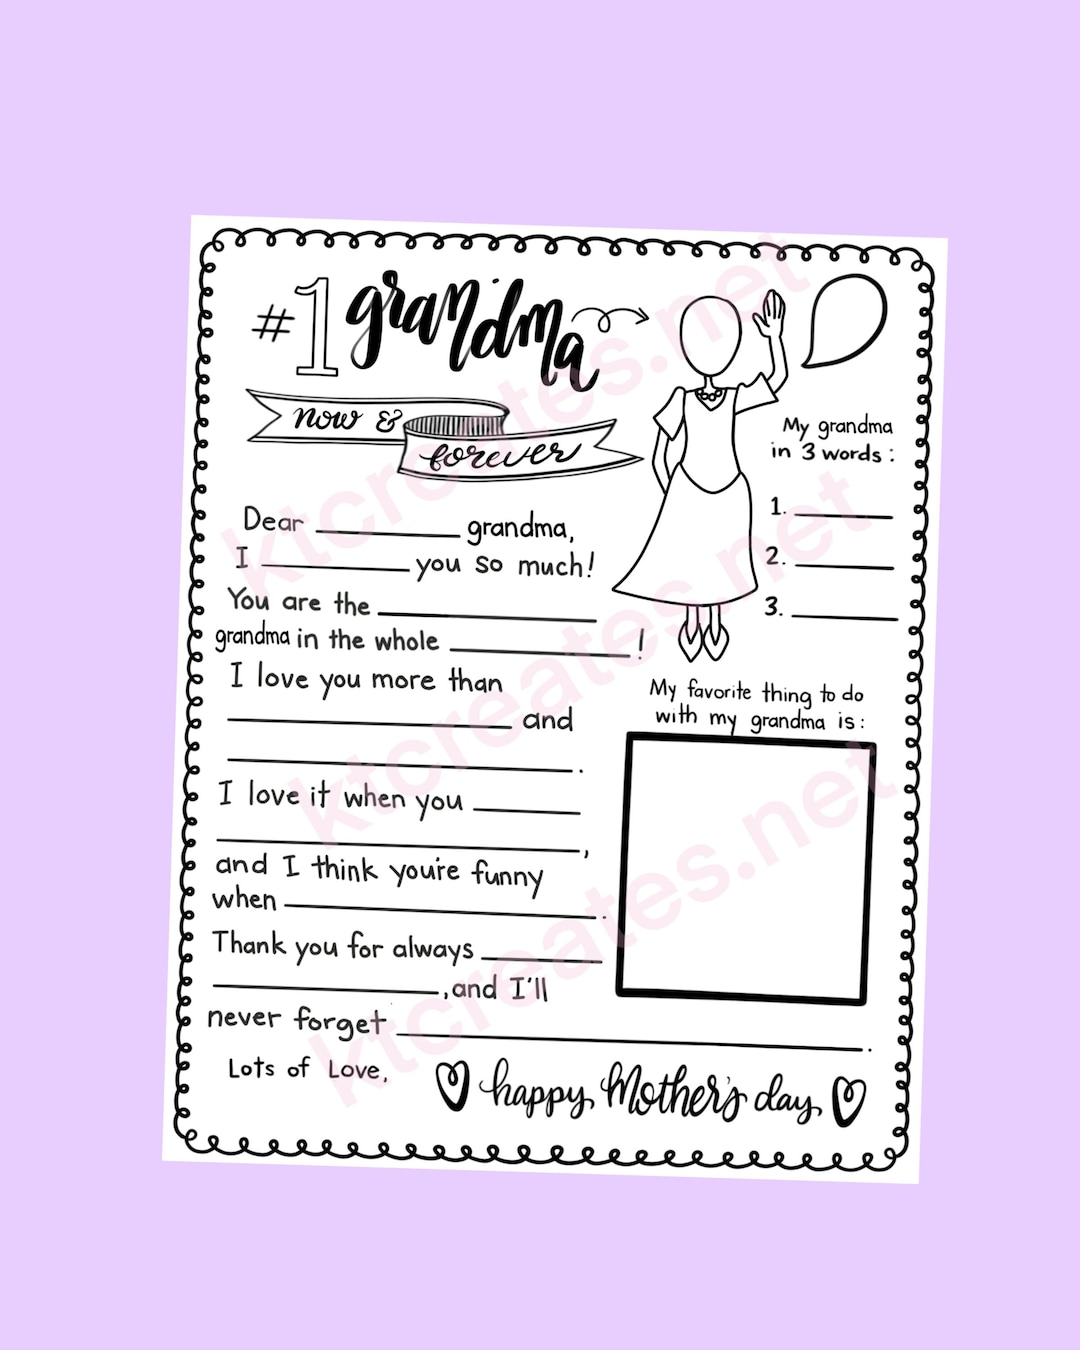 #1 grandma
now &
forever
Dear ____________ grandma,
I ____________ you so much!
You are the ____________
grandma in the whole ____________!
I love you more than
____________ and
____________.
I love it when you ____________
____________,
and I think you're funny
when ____________.
Thank you for always ____________
____________, and I'll
never forget ____________.
Lots of Love,
happy Mother's day
My grandma
in 3 words:
1. ____________
2. ____________
3. ____________
My favorite thing to do
with my grandma is:
ktcreates.net
ktcreates.net
ktcreates.net